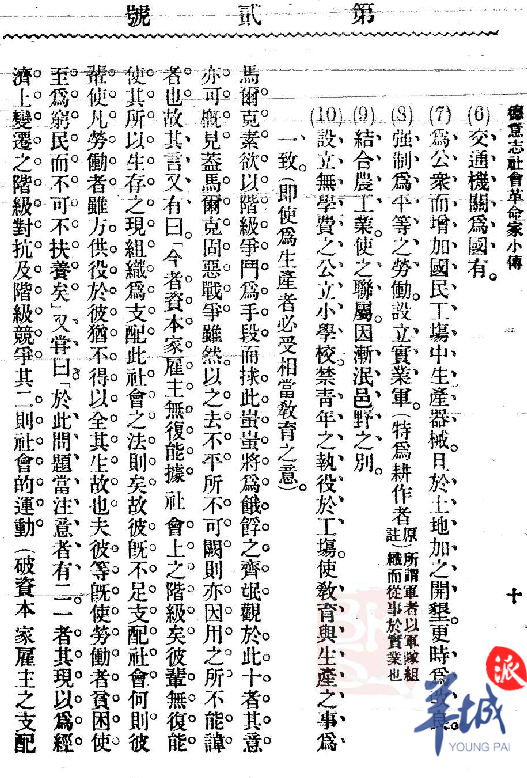 第貳號
德意志社會革命家小傳 十
(6)交通機關爲國有。
(7)爲公衆而增加國民工塲中生產器械。且於土地加之開墾更時爲良。
(8)强制爲平等之勞働。設立實業軍(特爲耕作者 原註)所謂軍者以軍隊組織而從事於實業也
(9)結合農工業使之聯屬因漸泯邑野之別。
(10)設立無學費之公立小學校。禁青年之執役於工塲。使敎育與生產之事爲
一致。(即使爲生產者必受相當敎育之意)。
馬爾克素欲以階級爭鬥爲手段而捄此蚩蚩將爲餓殍之齊氓觀於此十者其意
亦可槪見蓋馬爾克固惡戰爭雖然以之去不平所不可闕則亦因用之所不能諱
者也故其言又有曰「今者資本家雇主無復能據社會上之階級矣彼輩無復能
使其所以生存之現組織爲支配此社會之法則矣故彼旣不足支配社會何則彼
輩使凡勞働者雖方供役於彼猶不得以全其生故也夫彼等旣使勞働者貧困使
至爲窮民而不可不扶養矣」又嘗曰「於此問題當注意者有二一者其現以爲經
濟上變遷之階級對抗及階級競爭其二則社會的運動(破資本家雇主之支配
羊城派
YOUNG PAI